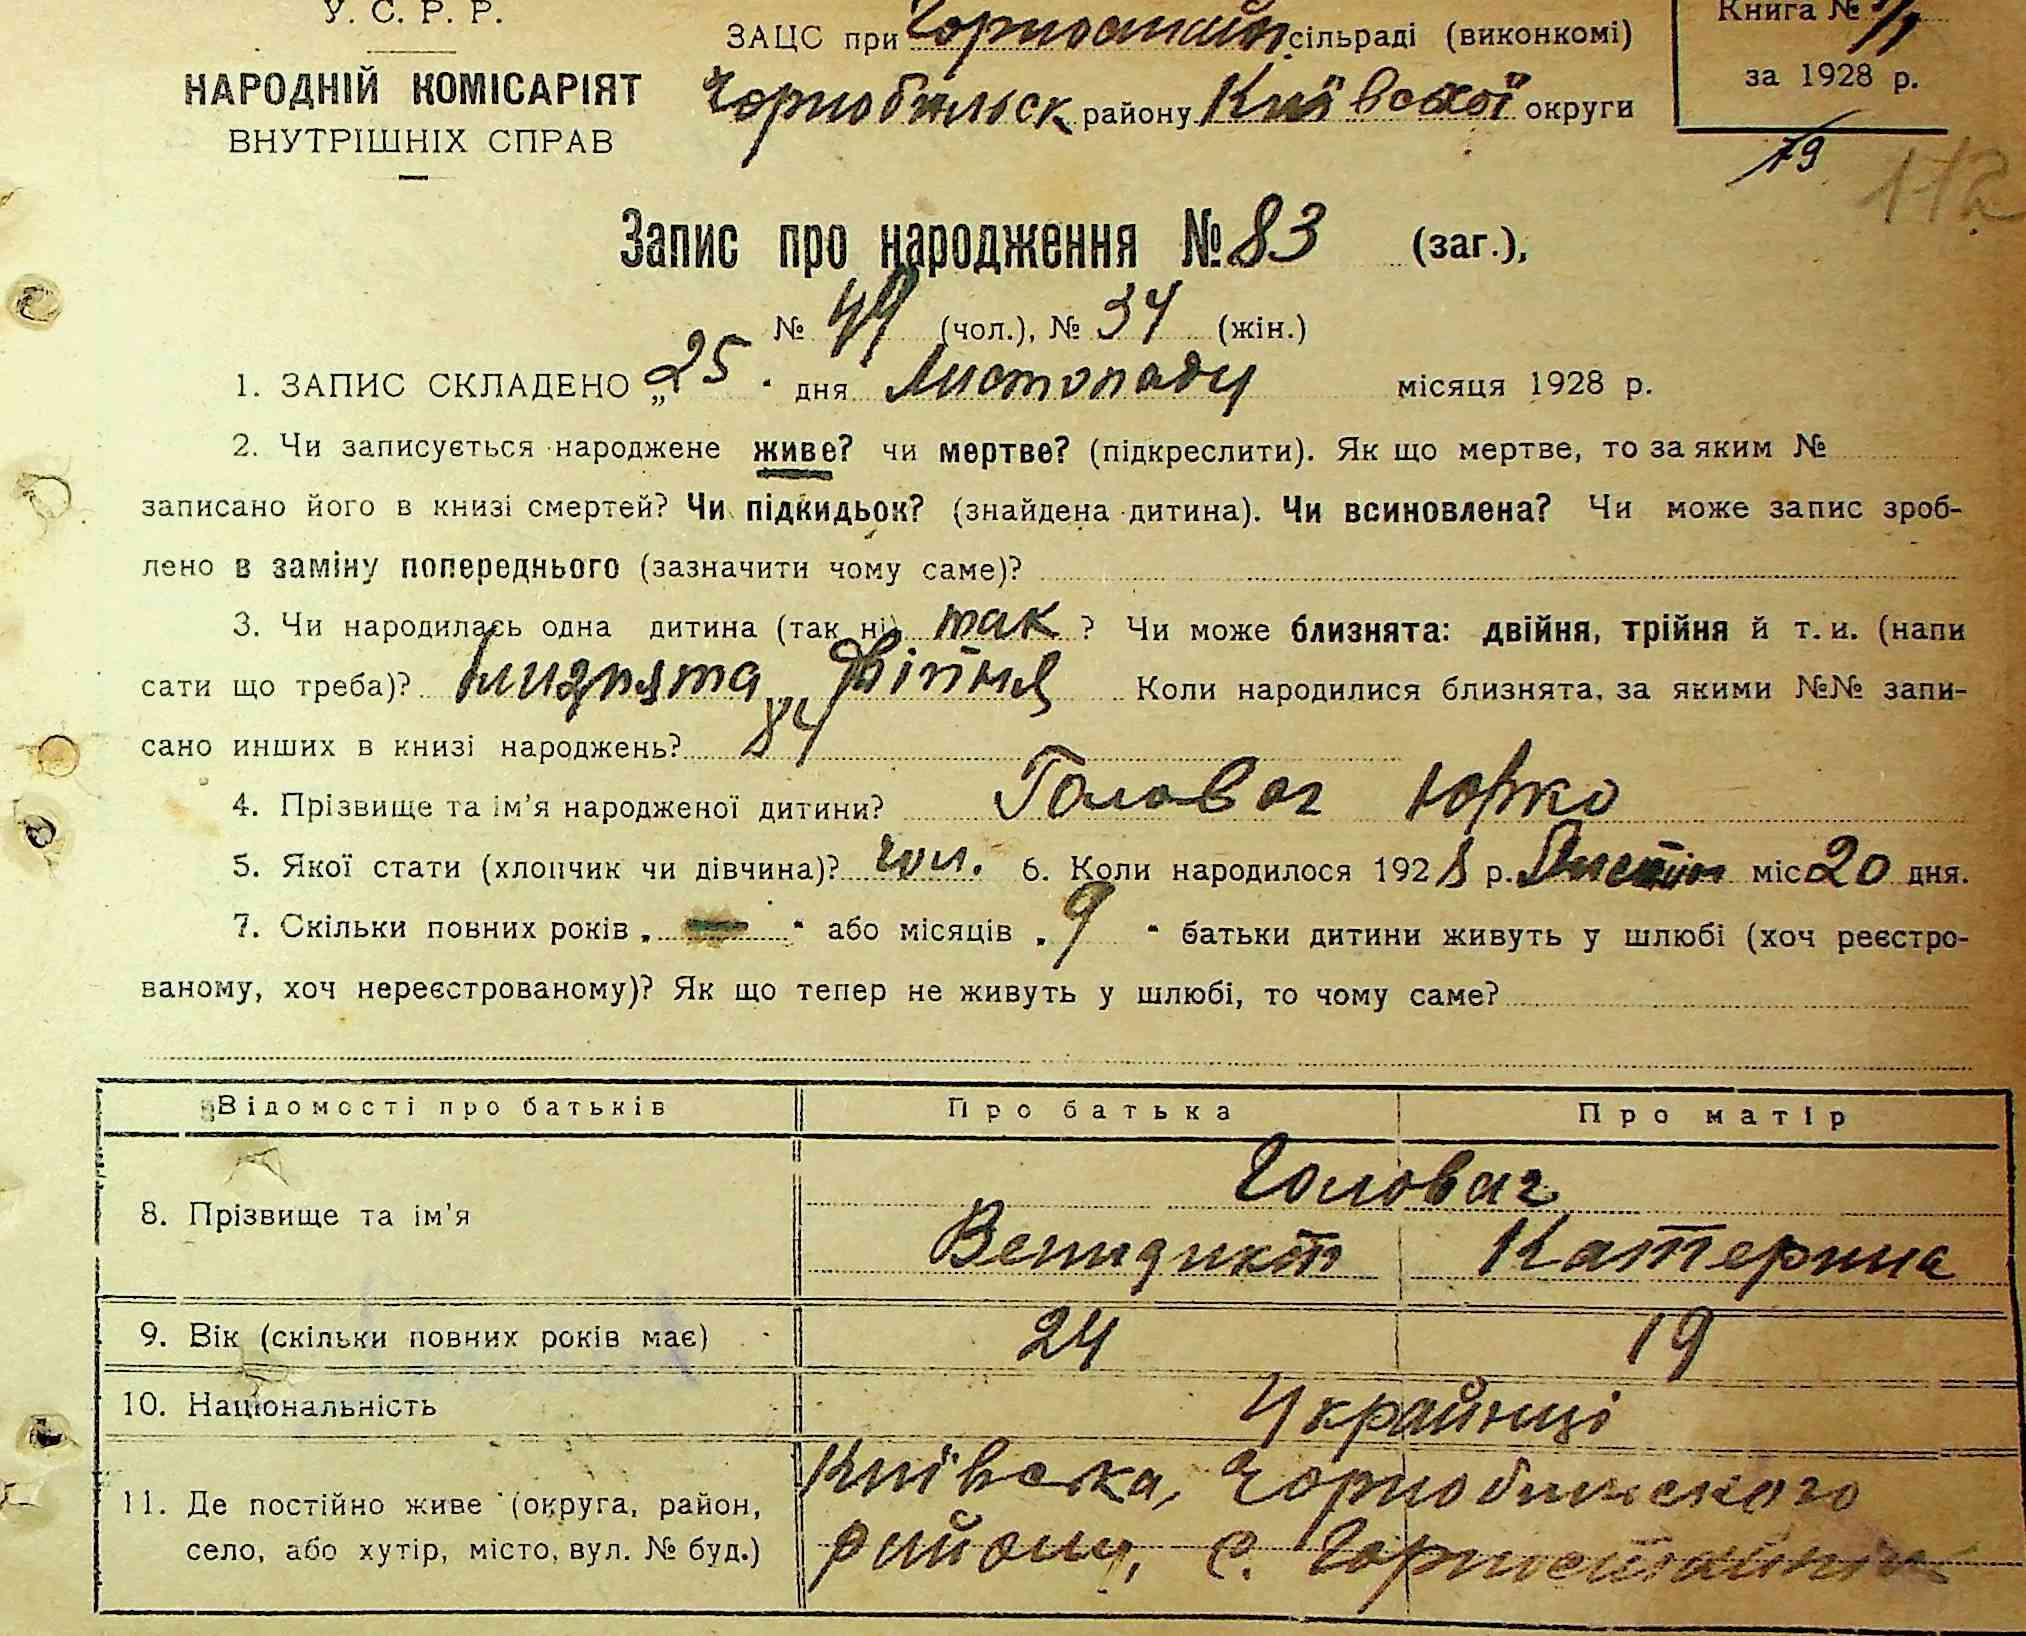 У. С. Р. Р.
НАРОДНІЙ КОМІСАРІЯТ
ВНУТРІШНІХ СПРАВ
ЗАЦС при Горностайп. сільраді (виконкомі)
Чорнобильск району Київської округи
Книга №
за 1928 р.
79
112
Запис про народження № 83 (заг.),
№ 49 (чол.), № 34 (жін.)
1. ЗАПИС СКЛАДЕНО „25" дня Листопаду місяця 1928 р.
2. Чи записується народжене живе? чи мертве? (підкреслити). Як що мертве, то за яким №
записано його в книзі смертей? Чи підкидьок? (знайдена дитина). Чи всиновлена? Чи може запис зроб-
лено в заміну попереднього (зазначити чому саме)?
3. Чи народилась одна дитина (так ні) так ? Чи може близнята: двійня, трійня й т. и. (напи
сати що треба)? близнята двійня Коли народилися близнята, за якими №№ запи-
сано инших в книзі народжень? 84
4. Прізвище та ім'я народженої дитини? Головач Юрко
5. Якої стати (хлопчик чи дівчина)? чол. 6. Коли народилося 1928 р. міс 20 дня.
7. Скільки повних років „ — " або місяців „ 9 " батьки дитини живуть у шлюбі (хоч реєстро-
ваному, хоч нереєстрованому)? Як що тепер не живуть у шлюбі, то чому саме?
Відомості про батьків Про батька Про матір
8. Прізвище та ім'я Головач
Венидикт Катерина
9. Вік (скільки повних років має) 24 19
10. Національність Українці
11. Де постійно живе (округа, район, Київська, Чорнобильского
село, або хутір, місто, вул. № буд.) району, с. Горностайпіль